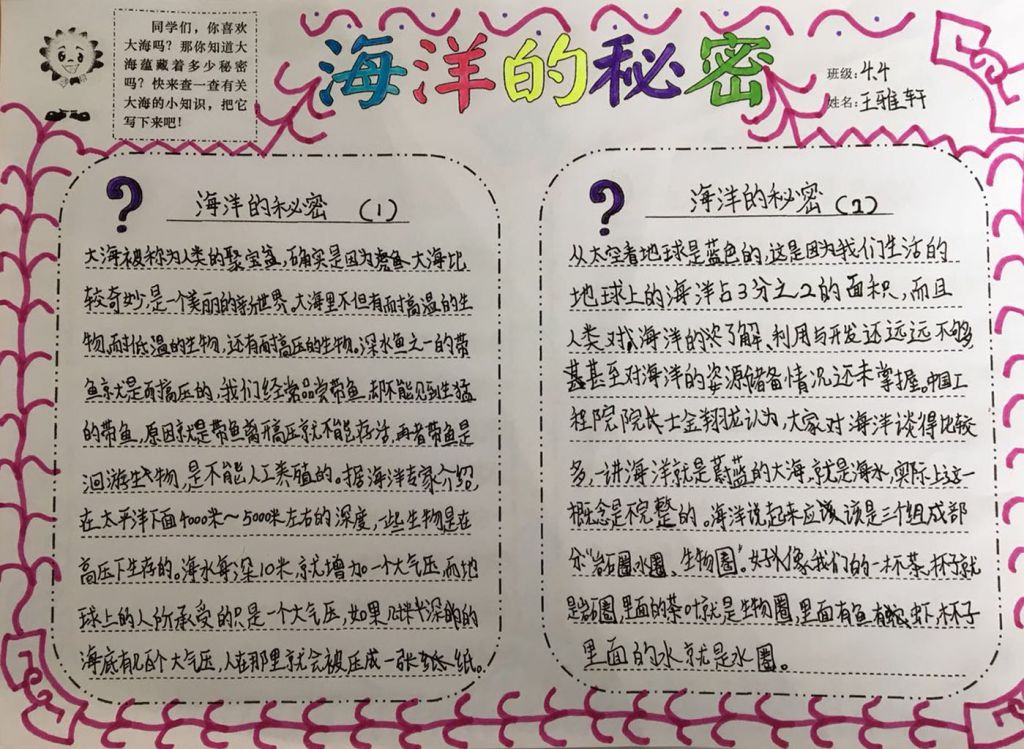 同学们，你喜欢
大海吗？那你知道大
海蕴藏着多少秘密
吗？快来查一查有关
大海的小知识，把它
写下来吧！
海洋的秘密
班级：4.4
姓名：王雅轩
? 海洋的秘密 （1）
大海被称为人类的聚宝盆，确实是因为 大海比
较奇妙，是一个美丽的新世界。大海里不但有耐高温的生
物，耐低温的生物，还有耐高压的生物。深水鱼之一的带
鱼就是耐高压的，我们经常品尝带鱼，却不能见到生猛
的带鱼，原因就是带鱼离开高压就不能存活，再者带鱼是
洄游生物，是不能人工养殖的。据海洋专家介绍
在太平洋下面4000米～5000米左右的深度，一些生物是在
高压下生存的。海水每深10米，就增加一个大气压，而地
球上的人所承受的只是一个大气压，如果 深的
海底有几百个大气压，人在那里就会被压成一张纸。
? 海洋的秘密（2）
从太空看地球是蓝色的，这是因为我们生活的
地球上的海洋占3分之2的面积，而且
人类对海洋的 了解、利用与开发还远远不够
甚至对海洋的资源储备情况还未掌握。中国工
程院院长士金翔龙认为，大家对海洋谈得比较
多，一讲海洋就是蔚蓝的大海，就是海水，实际上这一
概念是不完整的。海洋说起来应该是三个组成部
分“岩石圈水圈、生物圈”。好像我们的一杯茶，杯子就
是岩石圈，里面的茶叶就是生物圈，里面有鱼有 虾，杯子
里面的水就是水圈。